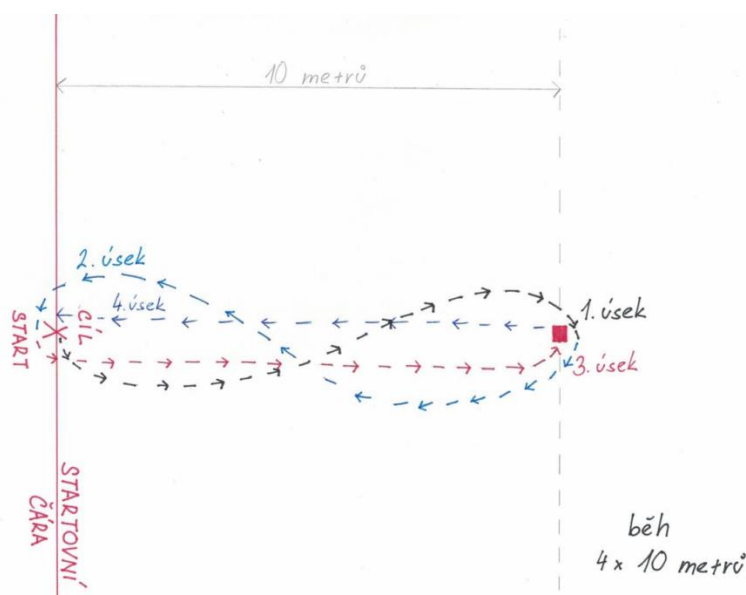 10 metrů
2. úsek
4. úsek
1. úsek
START
CÍL
3. úsek
STARTOVNÍ
ČÁRA
běh
4 x 10 metrů